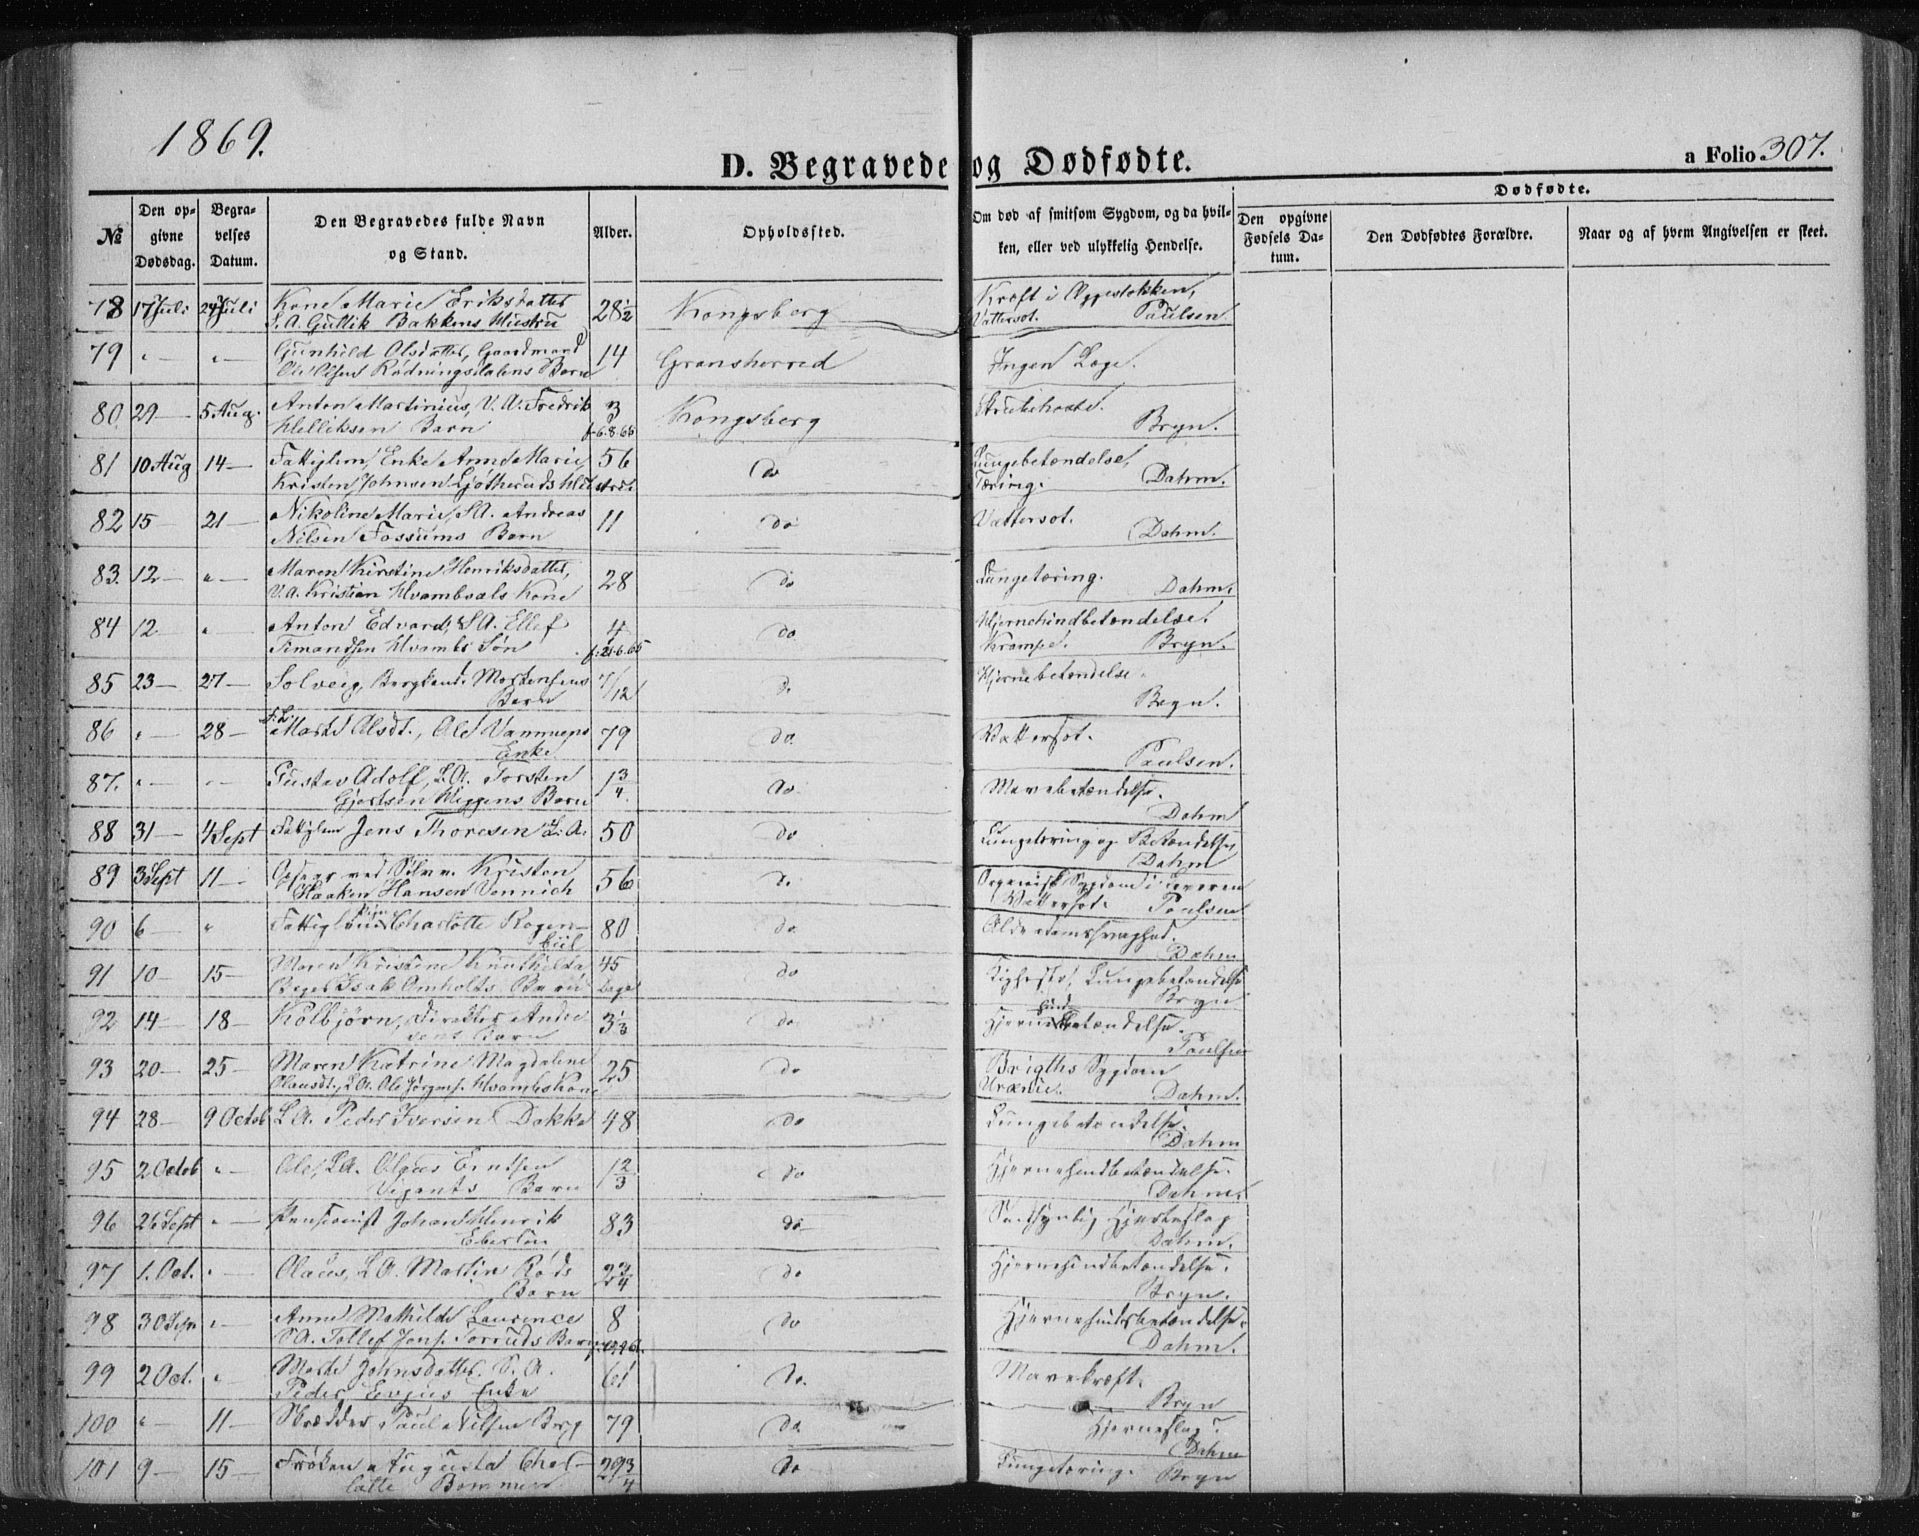 1869.
D. Begravede og Dødfødte.
a Folio 307.
№
Den opgivne Dødsdag.
Begravelses Datum.
Den Begravedes fulde Navn og Stand.
Alder.
Opholdssted.
Om død af smitsom Sygdom, og da hvilken, eller ved ulykkelig Hendelse.
Dødfødte.
Den opgivne Fødsels Datum.
Den Dødfødtes Forældre.
Naar og af hvem Angivelsen er skeet.
78 17 Juli 24 Juli Kone Marie Eriksdatter 28½ Kongsberg Kræft i Æggestokken,
S.A. Gullik Bakkens Hustru Vattersot. Paulsen
79 " " Gunhild Olsdatter, Gaardmand 14 Gransherred Ingen Læge.
Ole Olsens Rødningsdalens Barn
80 29 — 5 Aug. Anton Martinius, V.A. Fredrik 3 Kongsberg Strubehoste.
Helliksen Barn f. 6.8.66 Bryn.
81 10 Aug 14 — Fattiglem, Enke Anne Marie, 56 do Lungebetændelse,
Kristen Johnsen Ljøtheruds Hustru Tæring. Dahm.
82 15 — 21 — Nikoline Marie, S.A. Andreas 11 do Vattersot.
Nilsen Fossums Barn Dahm.
83. 12 — " — Maren Kirstine Henriksdatter, 28 do Lungetæring.
V.A. Kristian Hvambsals Kone Dahm.
84 12 " Anton Edvard, S.A. Ellef 4 do Hjernehindbetændelse.
Timandsen Hvambs Søn f. 21.6.65 Krampe. Bryn.
85 23 — 27 — Solveig, Bergkand. Mortensens 7/12 do Hjernebetændelse.
Barn Bryn.
86 " 28 — F.L. Marte Olsdt., Ole 79 do Vattersot.
Enke Paulsen.
87. " — " — Gustav Adolf, L.A. Torsten 1¾ do Mavebetændelse.
Gjertsen Barn Dahm
88 31 — 4 Sept Fattiglem Jens Thoresen L.A. 50 do Lungetæring og Betændelse,
Dahm
89 3 Sept 11 — Opsyns ved Sølvv. Kristen 56 do Organisk Sygdom i Leveren
Haaken Hansen Vennich Vattersot. Paulsen
90 6 — " Fattiglem Pige Charlotte Rogenbiil 80 do Alderdomssvaghed.
Dahm
91 10 — 15 — Maren Kristine Knuthilda 45 do Kighoste, Lungebetændelse
Bager Isak Omholts Barn Dage Bryn
92 14 — 18 — Kolbjørn, Direktør Andresens Barn 3⅓ do Hjernehindebetændelse.
Paulsen
93 20 — 25 — Maren Katrine Magdalene 25 do Brigths Sygdom
Olausdt., L.A. Ole Jørgens. Hvambs Kone Uræmie. Dahm.
94 28 — 9 Octob L.A. Peder Iversen Dokka 48 do Lungebetændelse.
Dahm
95 2 Octob " — Ole, L.A. Olaus Erntsen 1⅔ do Hjernehindbetændelse.
Vigants Barn Dahm.
96 26 Sept " — Pensionist Johan Henrik 83 do Sandsynlig Hjerteslag
Eberlin Dahm.
97 1. Oct. " — Olaus, L.A. Martin Røds 2¾ do Hjernehindbetændelse.
Barn Bryn.
98 30 Sept " — Anne Mathilde Laurence 8 do Hjernehindebetændelse.
S.A. Tollef Jens. Torruds Barn Dahm.
99 2 Oct. " Marte Johnsdatter, S.A. 61 do Mavekræft.
Peder Evjus Enke Bryn
100 " — 11 — Skrædder Paul Nilsen Berg 79 do Hjerneslag?
Dahm
101 9 — 15 — Frøken Augusta Charlotte Bommen 29¾ do Lungetæring. Bryn